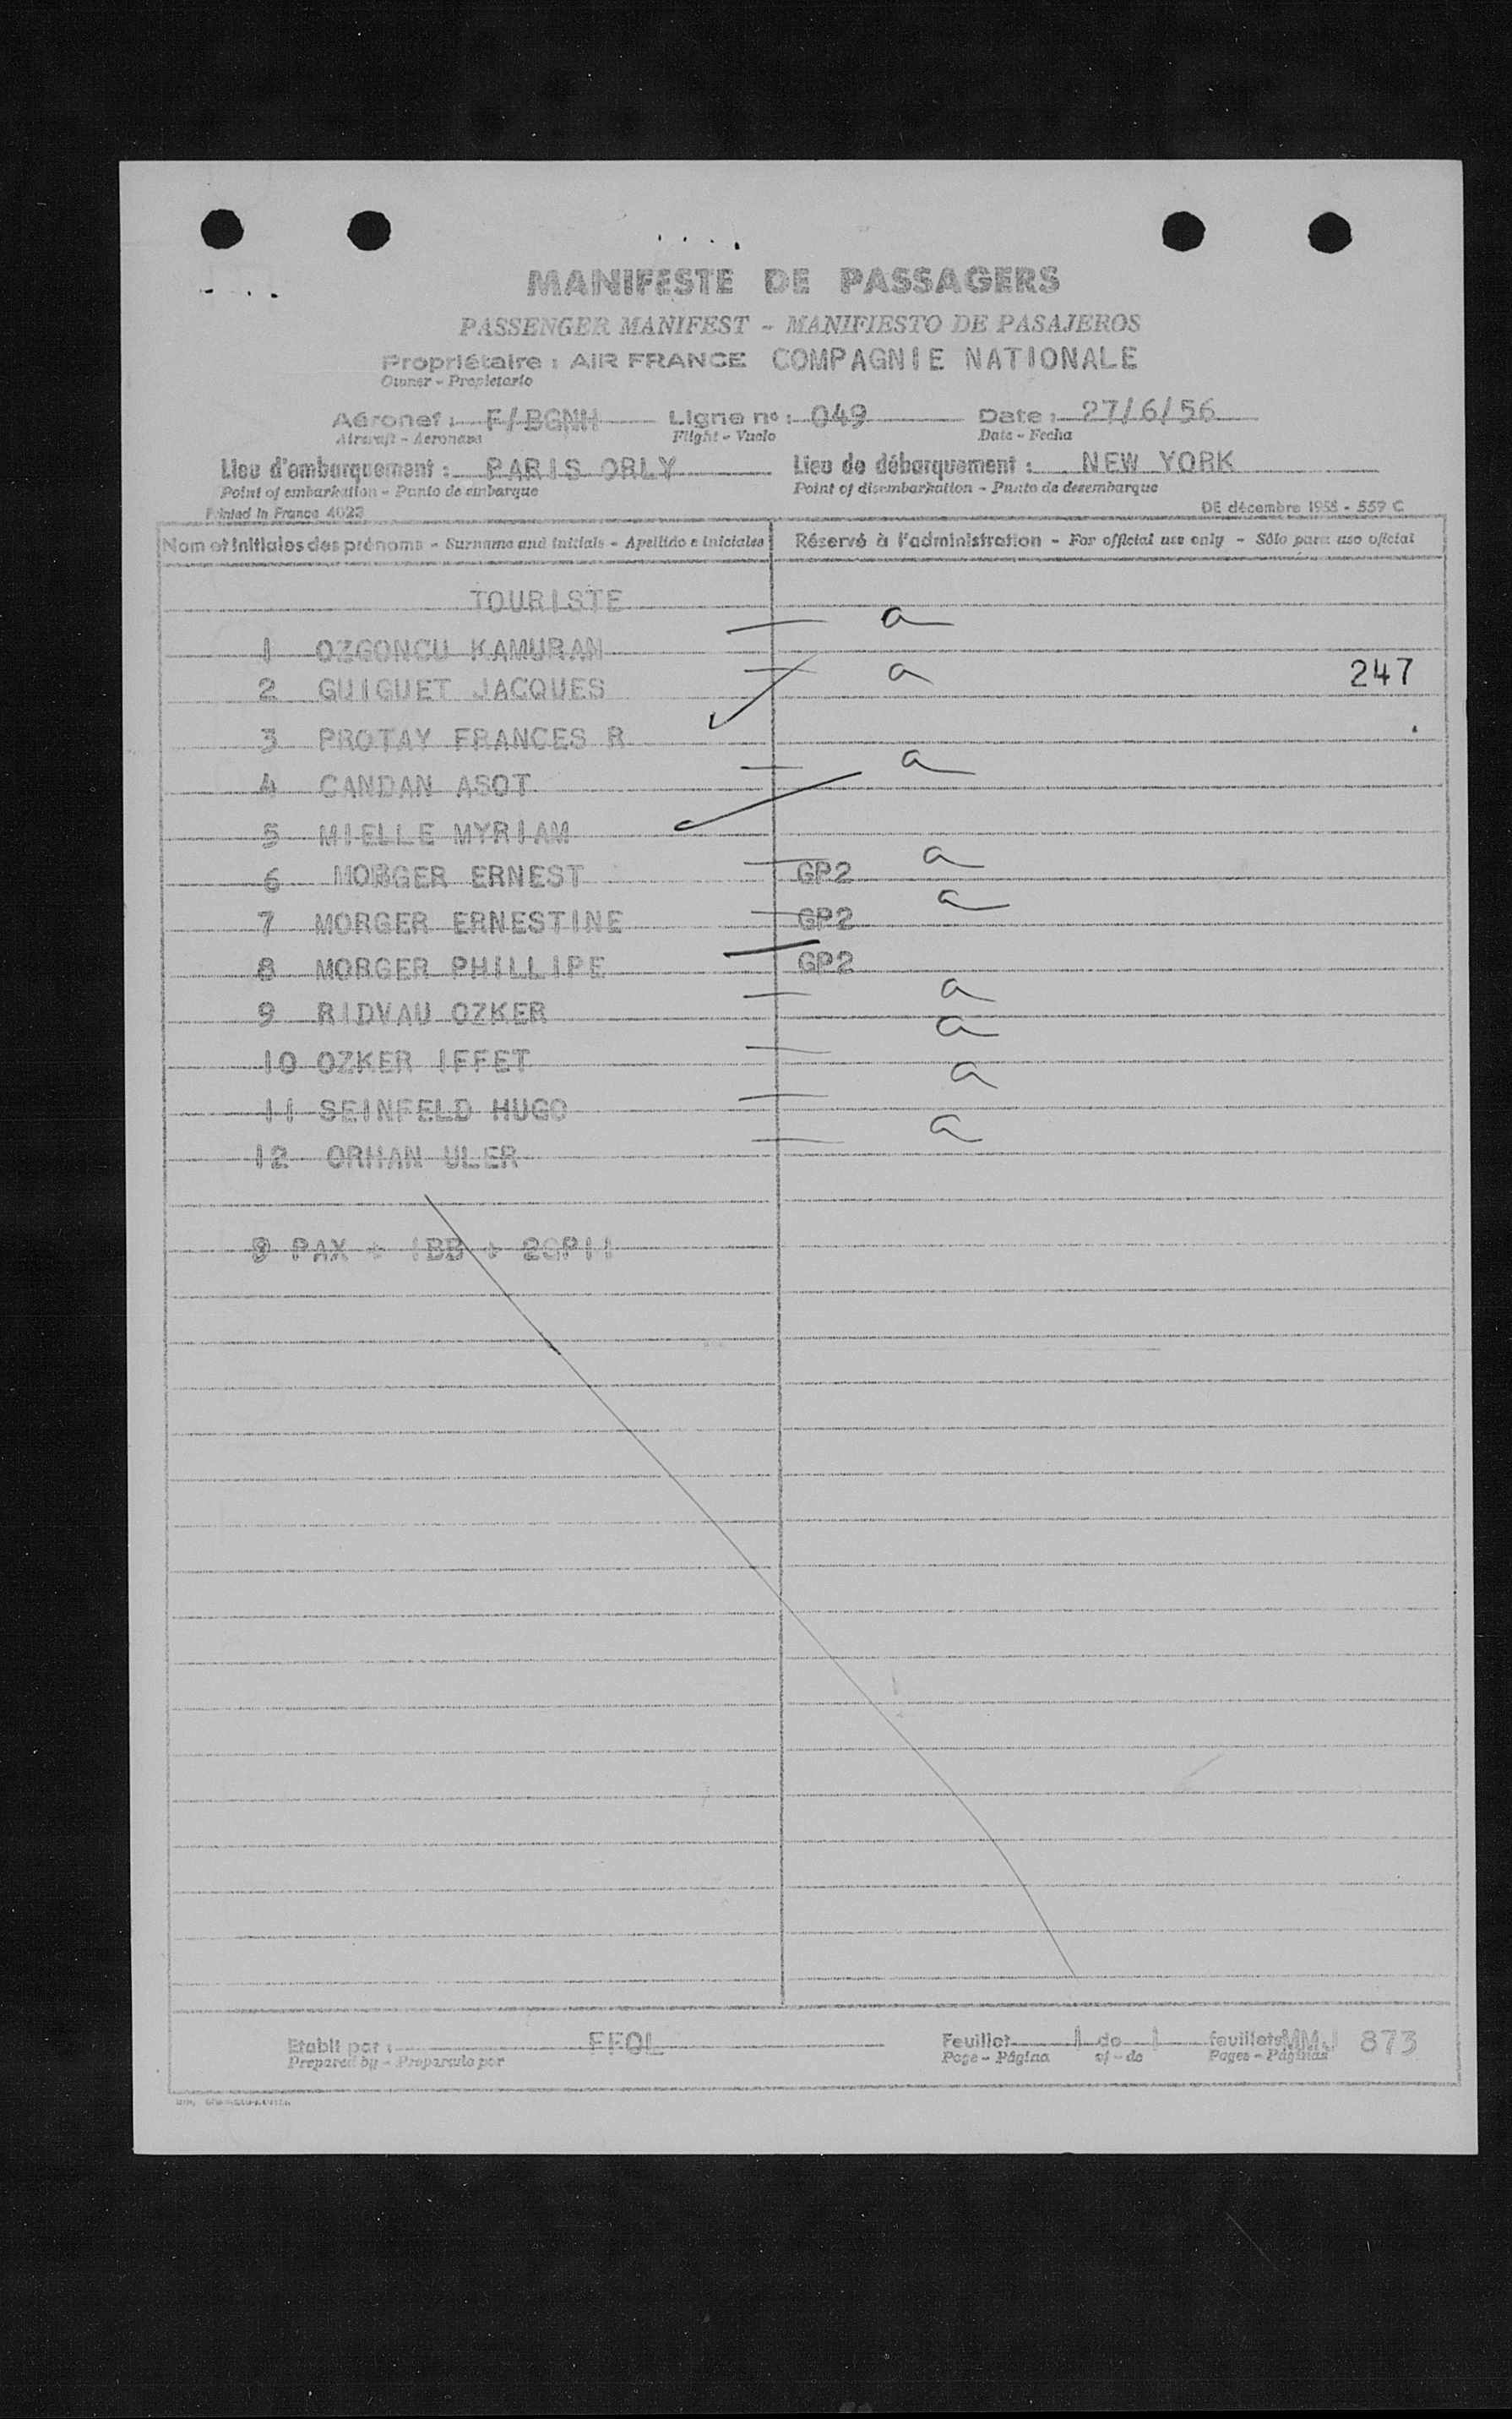 MANIFESTE DE PASSAGERS
PASSENGER MANIFEST - MANIFIESTO DE PASAJEROS
Propriétaire : AIR FRANCE COMPAGNIE NATIONALE
Owner - Propietario
Aéronef : F/BGNH Ligne nº : 049 Date : 27/6/56
Aircraft - Aeronave Flight - Vuelo Date - Fecha
Lieu d'embarquement : PARIS ORLY Lieu de débarquement : NEW YORK
Point of embarkation - Punto de embarque Point of disembarkation - Punto de desembarque
Printed in France 4023 DE décembre 1955 - 559 C
Nom et initiales des prénoms - Surname and initials - Apellido e iniciales Réservé à l'administration - For official use only - Sólo para uso oficial
TOURISTE
1 OZGONCU KAMURAN a
2 GUIGUET JACQUES a 247
3 PROTAY FRANCES R
4 CANDAN ASOT a
5 MIELLE MYRIAM
6 MORGER ERNEST GP2 a
7 MORGER ERNESTINE GP2 a
8 MORGER PHILLIPE GP2
9 RIDVAU OZKER a
10 OZKER IFFET a
11 SEINFELD HUGO a
12 ORHAN ULER a
9 PAX + 1BB + 2GP11
Etabli par : FFOL Feuillet 1 de 1 feuillets MMJ 873
Prepared by - Preparado por Page - Página of - de Pages - Páginas